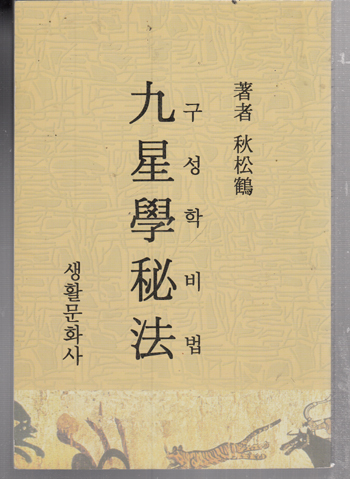 著者 秋松鶴
구성학비법
九星學秘法
생활문화사